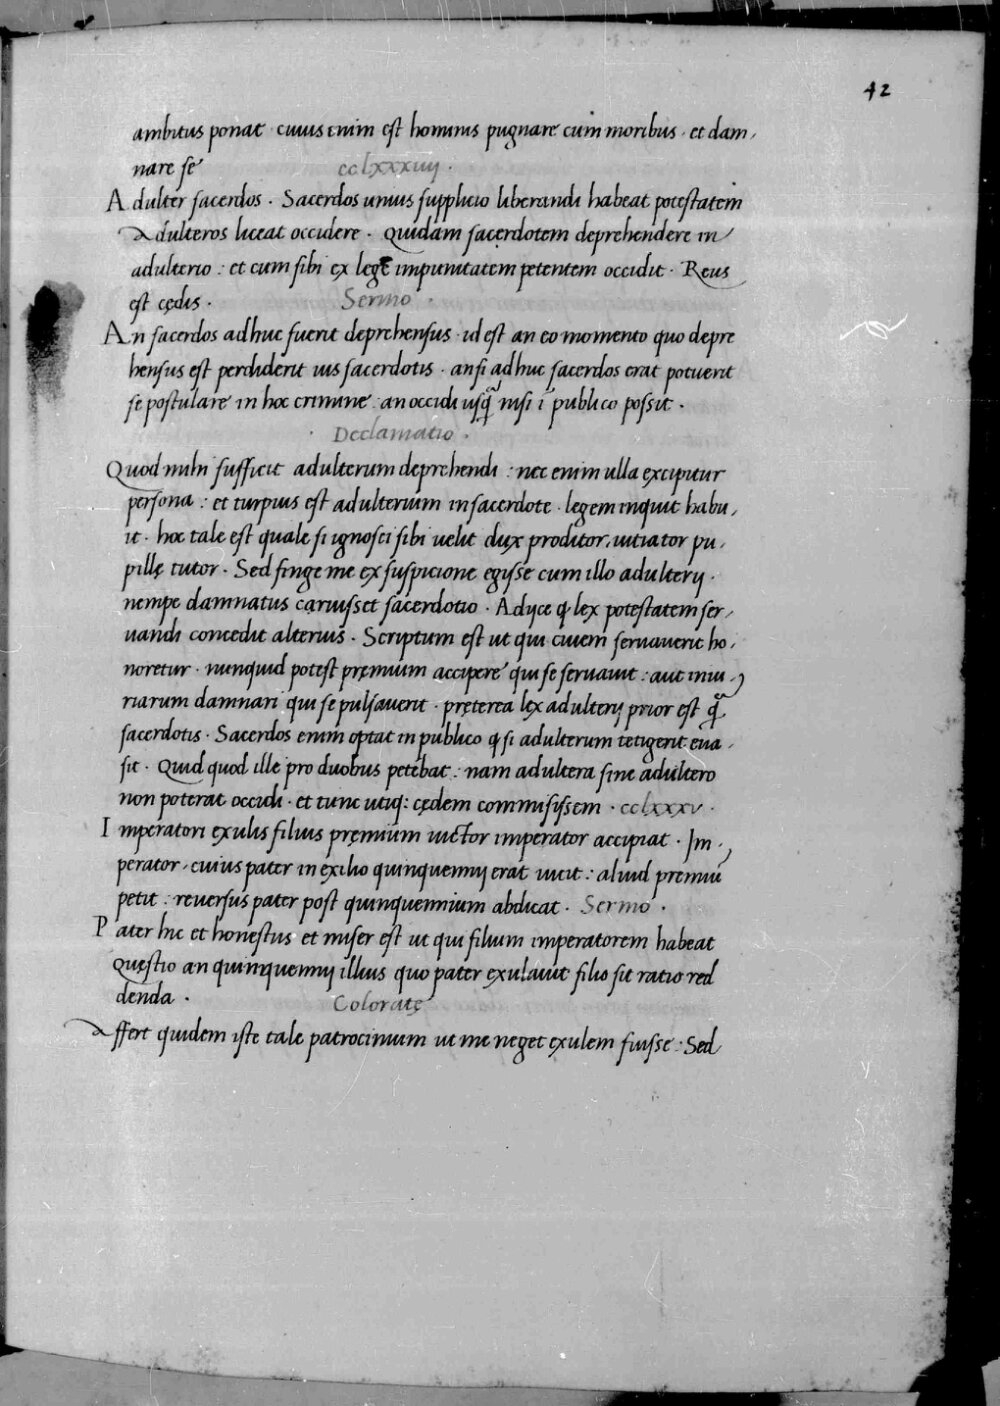 42
ambitus ponat · cuius enim est hominis pugnare cum moribus · et dam,
nare se cclxxxiiij ·
Adulter sacerdos · Sacerdos unius supplicio liberandi habeat potestatem
Adulteros liceat occidere · Quidam sacerdotem deprehendere in
adulterio : et cum sibi ex lege impunitatem petentem occidit · Reus
est cędis · Sermo ·
An sacerdos adhuc fuerit deprehensus · id est an eo momento quo depre
hensus est perdiderit ius sacerdotis · an si adhuc sacerdos erat potuerit
se postulare in hoc crimine · an occidi usq̃ nisi ĩ publico possit ·
· Declamatio ·
Quod mihi sufficit adulterum deprehendi : nec enim ulla excipitur
persona : et turpius est adulterium in sacerdote · legem inquit habu,
it · hoc tale est quale si ignosci sibi uelit dux proditor, uitiator pu,
pillę tutor · Sed finge me ex suspicione egisse cum illo adulterij ·
nempe damnatus caruisset sacerdotio · Adijce ꝙ lex potestatem ser,
uandi concedit alterius · Scriptum est ut qui ciuem seruauerit ho,
noretur · nunquid potest pręmium accipere qui se seruauit : aut iniu,
riarum damnari qui se pulsauerit · pręterea lex adulterij prior est q̃
sacerdotis · Sacerdos enim optat in publico ꝙ si adulterum tetigerit eua,
sit · Quid quod ille pro duobus petebat : nam adultera sine adultero
non poterat occidi · et tunc utiq: cędem commisissem · cclxxxv ·
Imperatori exulis filius pręmium uictor imperator accipiat · Im,
perator · cuius pater in exilio quinquennij erat uicit : aliud premiũ
petit : reuersus pater post quinquennium abdicat · Sermo ·
Pater hic et honestus et miser est ut qui filium imperatorem habeat
Quęstio an quinquennij illius quo pater exulauit filio sit ratio red
denda · Coloratę
Affert quidem iste tale patrocinium ut me neget exulem fuisse : Sed